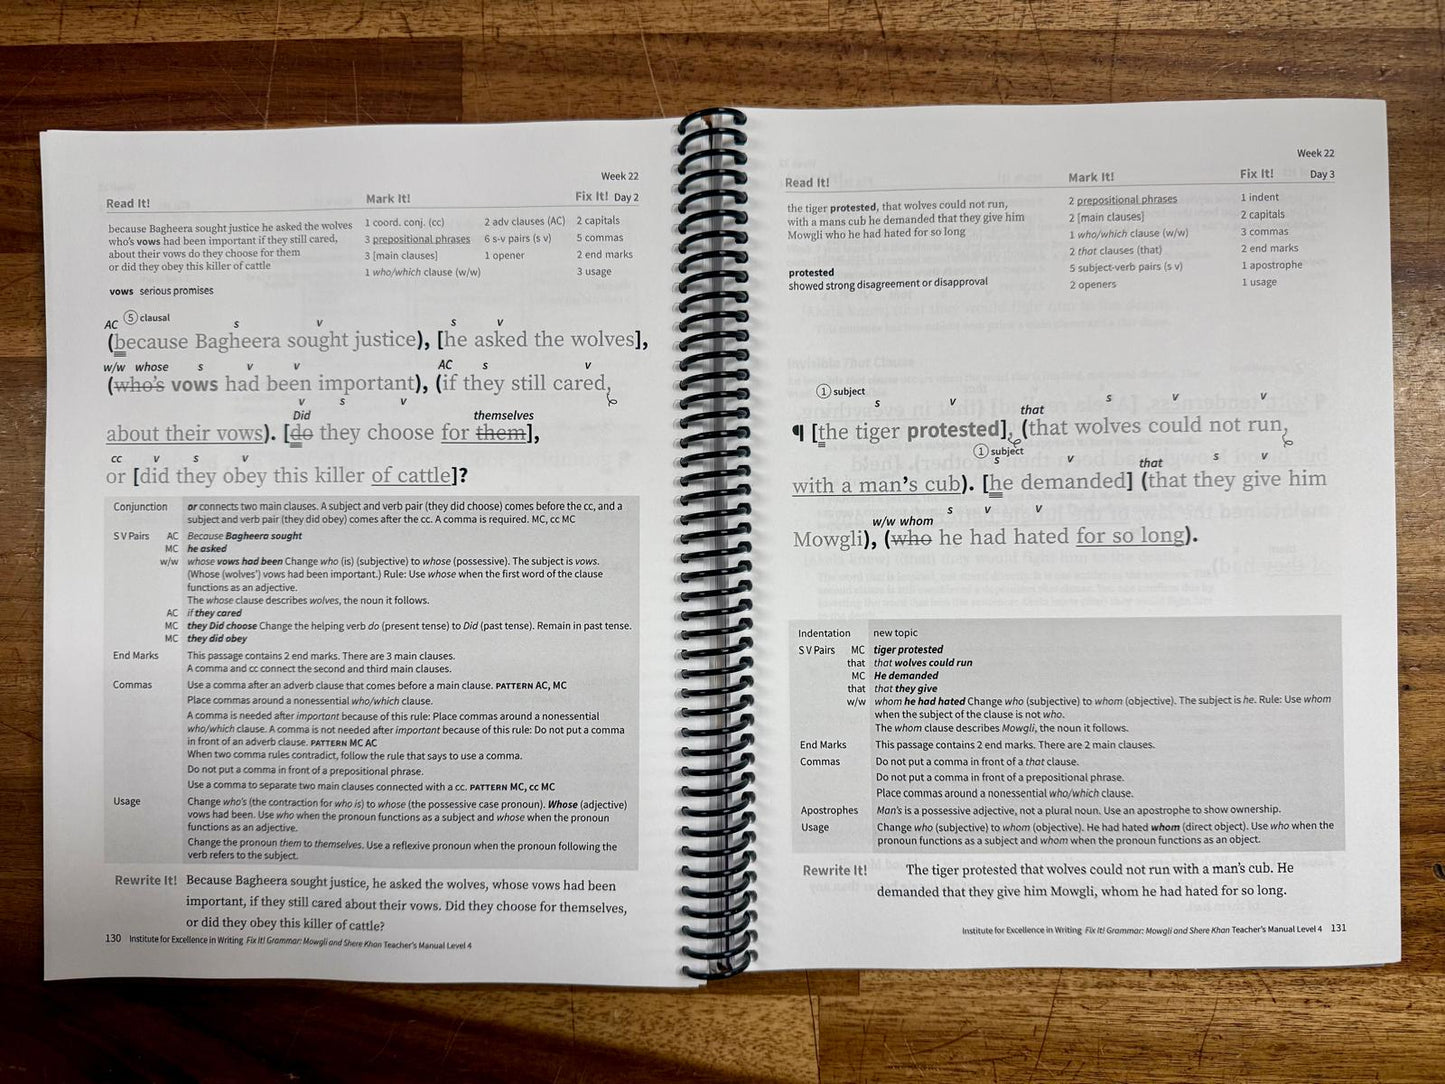 Week 22
Read It! Mark It! Fix It! Day 2
because Bagheera sought justice he asked the wolves
who's vows had been important if they still cared,
about their vows do they choose for them
or did they obey this killer of cattle
1 coord. conj. (cc) 2 adv clauses (AC) 2 capitals
3 prepositional phrases 6 s-v pairs (s v) 5 commas
3 [main clauses] 1 opener 2 end marks
1 who/which clause (w/w) 3 usage
vows serious promises
AC 5 clausal s v s v
(because Bagheera sought justice), [he asked the wolves],
w/w whose s v v AC s v
(who's vows had been important), (if they still cared,
v s v
Did themselves
about their vows). [do they choose for them],
cc v s v
or [did they obey this killer of cattle]?
Conjunction or connects two main clauses. A subject and verb pair (they did choose) comes before the cc, and a
subject and verb pair (they did obey) comes after the cc. A comma is required. MC, cc MC
S V Pairs AC Because Bagheera sought
MC he asked
w/w whose vows had been Change who (is) (subjective) to whose (possessive). The subject is vows.
(Whose (wolves') vows had been important.) Rule: Use whose when the first word of the clause
functions as an adjective.
The whose clause describes wolves, the noun it follows.
AC if they cared
MC they Did choose Change the helping verb do (present tense) to Did (past tense). Remain in past tense.
MC they did obey
End Marks This passage contains 2 end marks. There are 3 main clauses.
A comma and cc connect the second and third main clauses.
Commas Use a comma after an adverb clause that comes before a main clause. PATTERN AC, MC
Place commas around a nonessential who/which clause.
A comma is needed after important because of this rule: Place commas around a nonessential
who/which clause. A comma is not needed after important because of this rule: Do not put a comma
in front of an adverb clause. PATTERN MC AC
When two comma rules contradict, follow the rule that says to use a comma.
Do not put a comma in front of a prepositional phrase.
Use a comma to separate two main clauses connected with a cc. PATTERN MC, cc MC
Usage Change who's (the contraction for who is) to whose (the possessive case pronoun). Whose (adjective)
vows had been. Use who when the pronoun functions as a subject and whose when the pronoun
functions as an adjective.
Change the pronoun them to themselves. Use a reflexive pronoun when the pronoun following the
verb refers to the subject.
Rewrite It! Because Bagheera sought justice, he asked the wolves, whose vows had been
important, if they still cared about their vows. Did they choose for themselves,
or did they obey this killer of cattle?
130 Institute for Excellence in Writing Fix It! Grammar: Mowgli and Shere Khan Teacher's Manual Level 4
Week 22
Read It! Mark It! Fix It! Day 3
the tiger protested, that wolves could not run,
with a mans cub he demanded that they give him
Mowgli who he had hated for so long
protested
showed strong disagreement or disapproval
2 prepositional phrases 1 indent
2 [main clauses] 2 capitals
1 who/which clause (w/w) 3 commas
2 that clauses (that) 2 end marks
5 subject-verb pairs (s v) 1 apostrophe
2 openers 1 usage
1 subject
s v that s v v
¶ [the tiger protested], (that wolves could not run,
1 subject
s v that s v
with a man's cub). [he demanded] (that they give him
w/w whom s v v
Mowgli), (who he had hated for so long).
Indentation new topic
S V Pairs MC tiger protested
that that wolves could run
MC He demanded
that that they give
w/w whom he had hated Change who (subjective) to whom (objective). The subject is he. Rule: Use whom
when the subject of the clause is not who.
The whom clause describes Mowgli, the noun it follows.
End Marks This passage contains 2 end marks. There are 2 main clauses.
Commas Do not put a comma in front of a that clause.
Do not put a comma in front of a prepositional phrase.
Place commas around a nonessential who/which clause.
Apostrophes Man's is a possessive adjective, not a plural noun. Use an apostrophe to show ownership.
Usage Change who (subjective) to whom (objective). He had hated whom (direct object). Use who when the
pronoun functions as a subject and whom when the pronoun functions as an object.
Rewrite It! The tiger protested that wolves could not run with a man's cub. He
demanded that they give him Mowgli, whom he had hated for so long.
Institute for Excellence in Writing Fix It! Grammar: Mowgli and Shere Khan Teacher's Manual Level 4 131